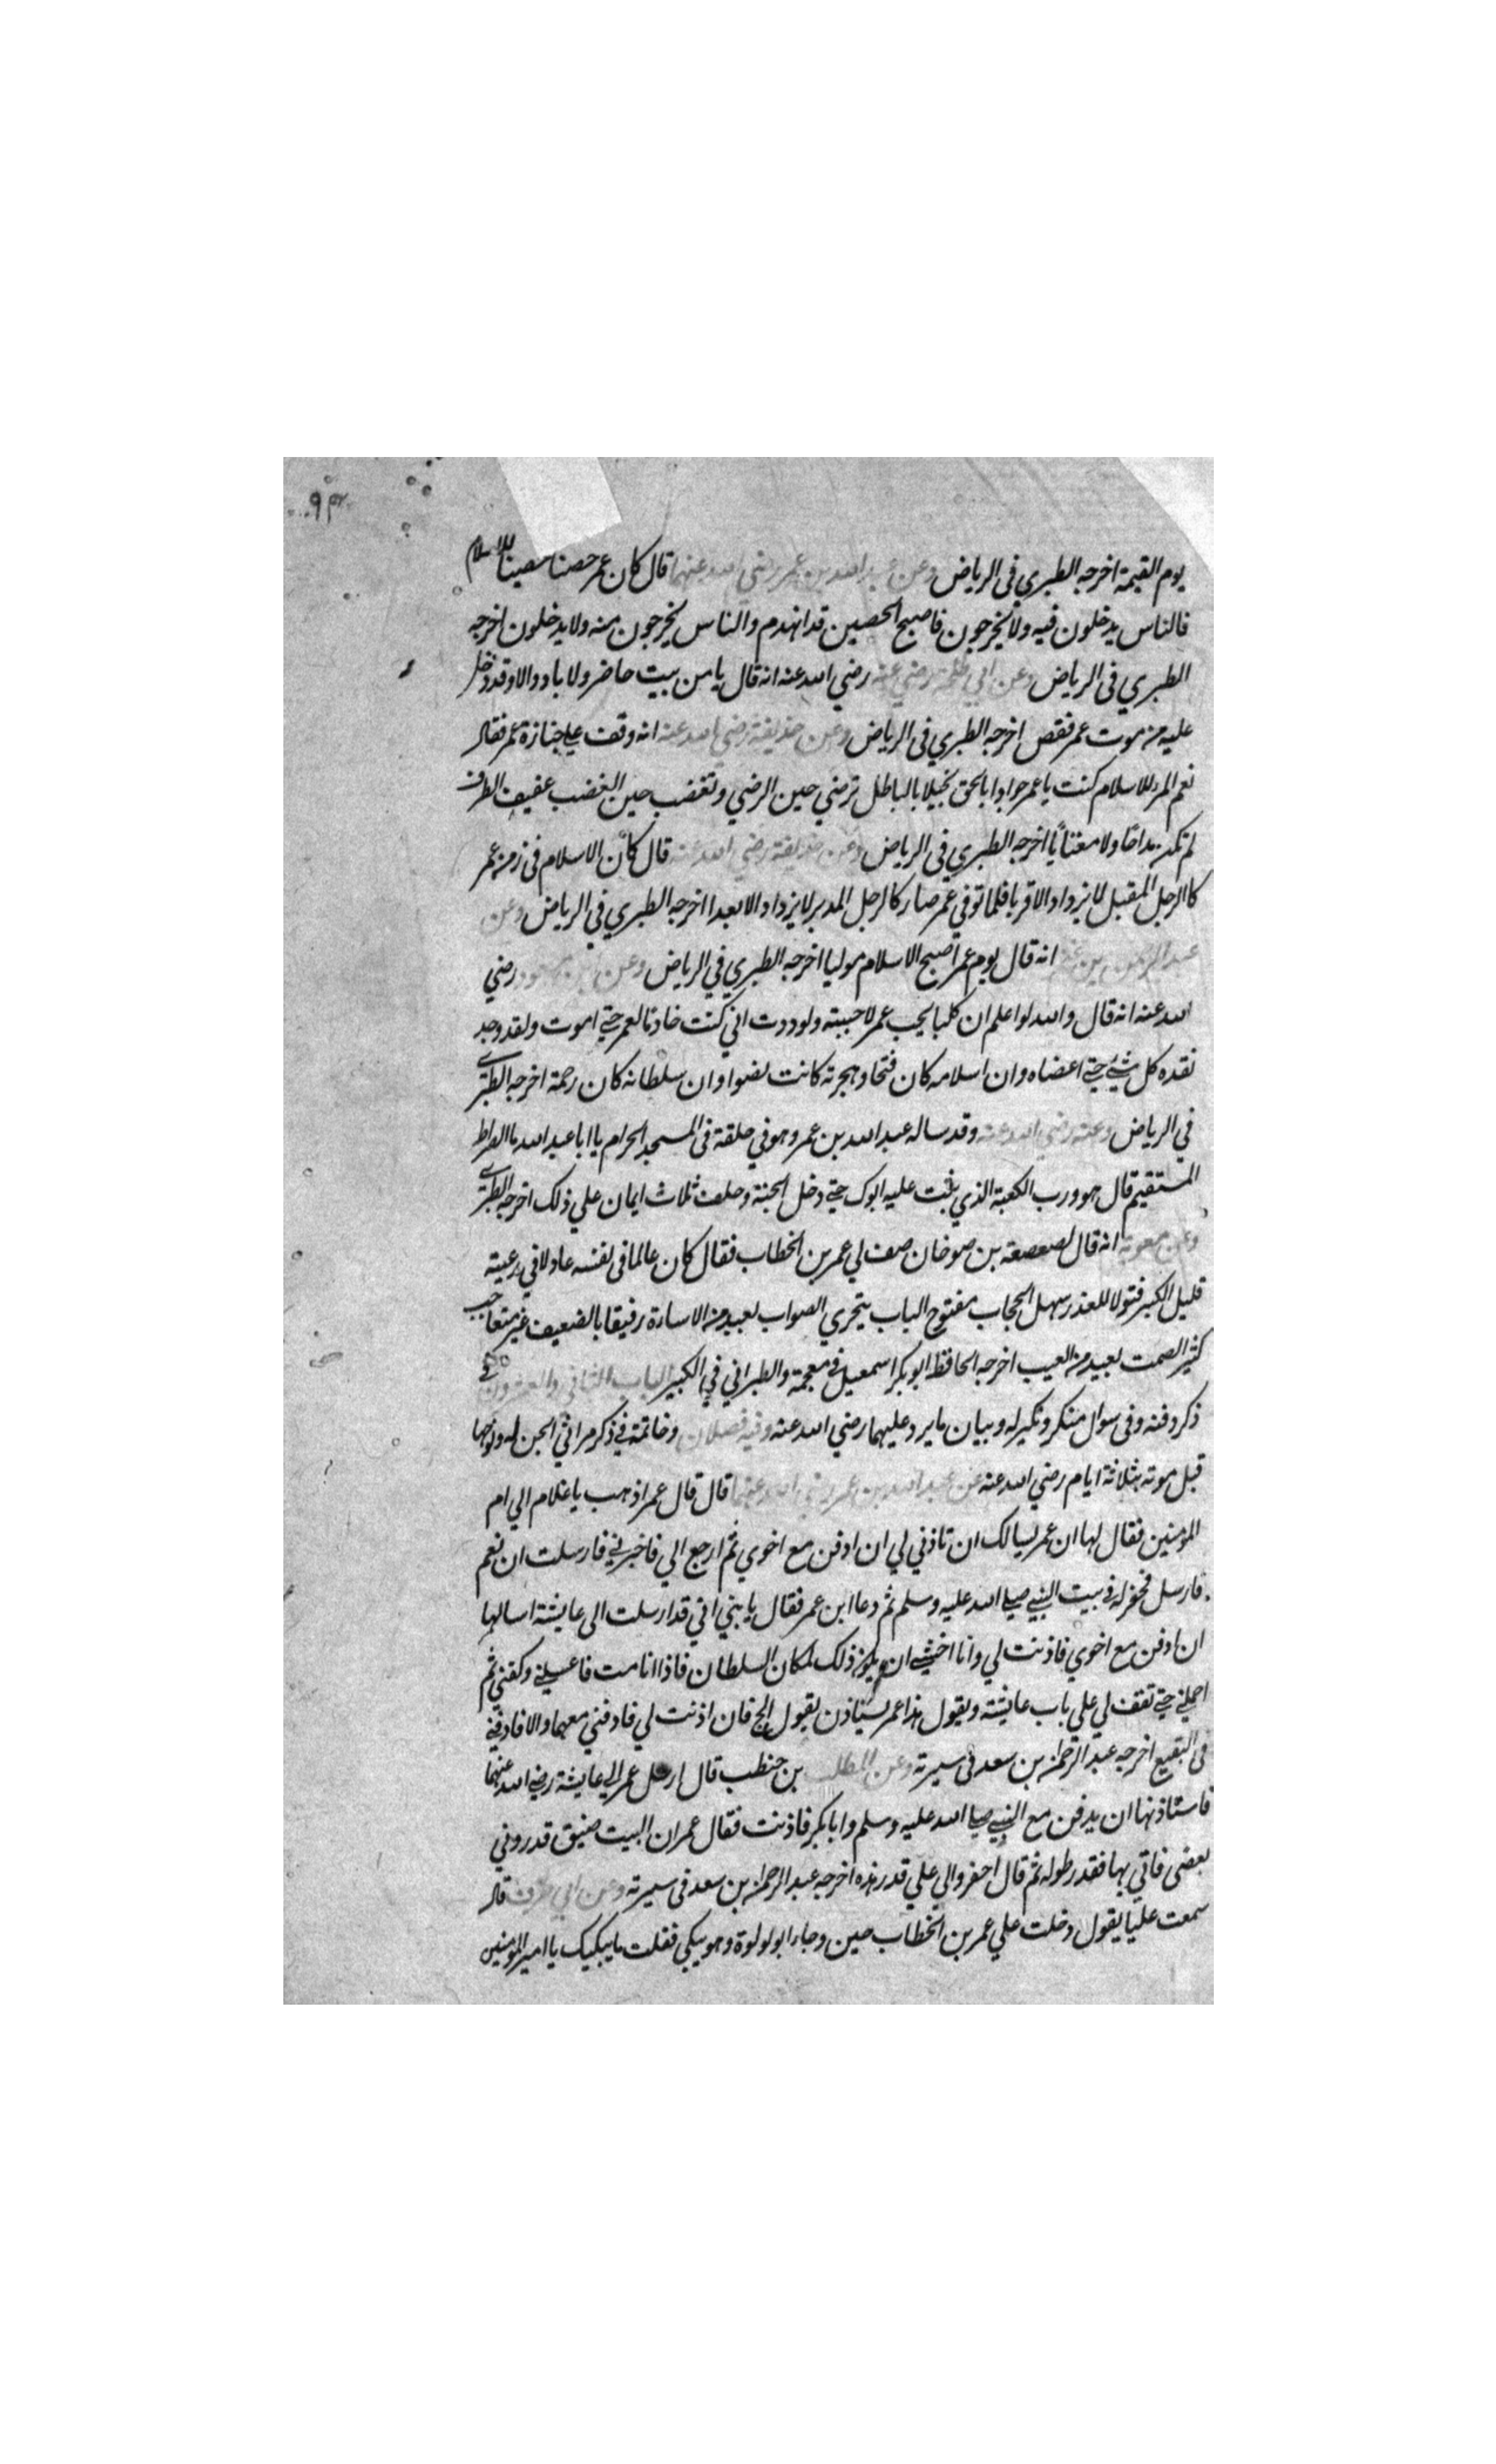 ٩٣
يوم القيمة اخرجه الطبري فى الرياض وعن عبد الله بن عمر رضي الله عنهما قال كان عمر حصنا حصينا للاسلام
فالناس يدخلون فيه ولا يخرجون فاصبح الحصين قد انهدم والناس يخرجون منه ولا يدخلون اخرجه
الطبري فى الرياض وعن ابي طلحة رضي عنه رضي الله عنه انه قال يا من بيت حاضر ولا باد والا وقد دخل
عليه من موت عمر فقص اخرجه الطبري فى الرياض وعن حذيفة رضي الله عنه انه وقف علي جنازة عمر فقال
نعم المرء للاسلام كنت يا عمر جوادا بالحق بخيلا بالباطل ترضي حين الرضي وتغضب حين الغضب عفيف الطرف
لم تكن مداحا ولا مغتابا اخرجه الطبري فى الرياض وعن حذيفة رضي الله عنه قال كان الاسلام فى زمن عمر
كالرجل المقبل لا يزداد الا قربا فلما توفي عمر صار كالرجل المدبر لا يزداد الا بعدا اخرجه الطبري في الرياض وعن
عبد الرحمن بن غنم انه قال يوم عمر اصبح الاسلام موليا اخرجه الطبري في الرياض وعن ابن مسعود رضي
الله عنه انه قال والله لو اعلم ان كلبا يحب عمر لاحببته ولوددت اني كنت خادما لعمر حتي اموت ولقد وجد
نقده كل شيء حتي اعضاه وان اسلامه كان فتحا وهجرته كانت نصرا وان سلطانه كان رحمة اخرجه الطبري
في الرياض وعنه رضي الله عنه وقد ساله عبد الله بن عمر وهو في حلقة فى المسجد الحرام يا ابا عبد الله ما الصراط
المستقيم قال هو ورب الكعبة الذي ثبت عليه ابوك حتي دخل الجنة وحلف ثلاث ايمان علي ذلك اخرجه الطبري
وعن معوية انه قال لصعصعة بن صوحان صف لي عمر بن الخطاب فقال كان عالما فى نفسه عادلا في رعيته
قليل الكبر قبولا للعذر سهل الحجاب مفتوح الباب يتحري الصواب بعيد من الاساءة رفيقا بالضعيف غير
كثير الصمت بعيد من العيب اخرجه الحافظ ابو بكر اسمعيل في معجمة والطبراني في الكبير الباب الثاني والعشرون في
ذكر دفنه وفى سوال منكر ونكير له وبيان ما يرد عليهما رضي الله عنه وفيه فصلان وخاتمة في ذكر مراثي الجن له ونوحها
قبل موته بثلاثة ايام رضي الله عنه عن عبد الله بن عمر رضي الله عنهما قال قال عمر اذهب يا غلام الي ام
المؤمنين فقال لها ان عمر يسالك ان تاذني لي ان ادفن مع اخوي ثم ارجع الي فاخبرني فارسلت ان نعم
فارسل فحفر له في بيت النبي صلي الله عليه وسلم ثم دعا ابن عمر فقال يا بني اني قد ارسلت الى عايشة اسالها
ان ادفن مع اخوي فاذنت لي وانا اخشي ان يكون ذلك لمكان السلطان فاذا انا مت فاغسلني وكفني ثم
احملني حتي تقف لي علي باب عايشة ويقول هذا عمر يستاذن يقول الج فان اذنت لي فادفني معهما والا فادفني
فى البقيع اخرجه عبد الرحمن بن سعد فى سيرته وعن المطلب بن حنطب قال ارسل عمر الي عايشة رضي الله عنهما
فاستاذنها ان يدفن مع النبي صلي الله عليه وسلم وابا بكر فاذنت فقال عمر ان البيت ضيق قدروني
بعضي فاتي بها فقدر طوله ثم قال احفروا لي علي قدر هذه اخرجه عبد الرحمن بن سعد فى سيرته وعن ابي قال
سمعت عليّا يقول دخلت علي عمر بن الخطاب حين وجاء ابو لولوة وهو يبكي فقلت ما يبكيك يا امير المؤمنين